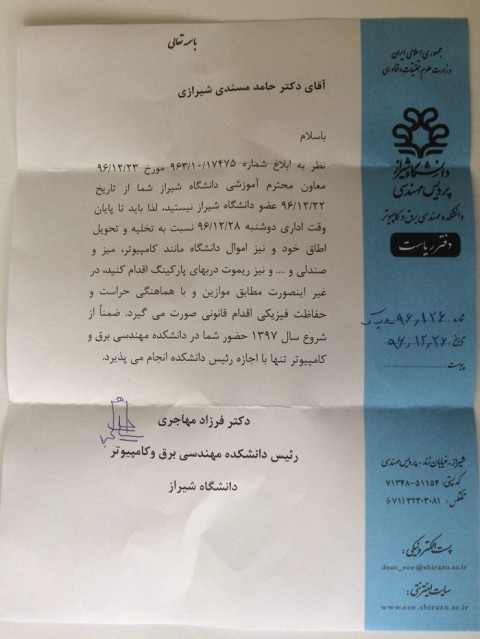 باسمه تعالی
آقای دکتر حامد مسندی شیرازی
باسلام
نظر به ابلاغ شماره ۹۶۳/۱۰/۱۷۴۷۵ مورخ ۹۶/۱۲/۲۳
معاون محترم آموزشی دانشگاه شیراز شما از تاریخ
۹۶/۱۲/۲۲ عضو دانشگاه شیراز نیستید، لذا باید تا پایان
وقت اداری دوشنبه ۹۶/۱۲/۲۸ نسبت به تخلیه و تحویل
اطاق خود و نیز اموال دانشگاه مانند کامپیوتر، میز و
صندلی و .... و نیز ریموت دربهای پارکینگ اقدام کنید، در
غیر اینصورت مطابق موازین و با هماهنگی حراست و
حفاظت فیزیکی اقدام قانونی صورت می گیرد. ضمناً از
شروع سال ۱۳۹۷ حضور شما در دانشکده مهندسی برق و
کامپیوتر تنها با اجازه رئیس دانشکده انجام می پذیرد.
دکتر فرزاد مهاجری
رئیس دانشکده مهندسی برق وکامپیوتر
دانشگاه شیراز
جمهوری اسلامی ایران
وزارت علوم تحقیقات و فناوری
دانشگاه شیراز
پردیس مهندسی
دانشکده مهندسی برق و کامپیوتر
دفتر ریاست
شماره:
تاریخ: ۹۶,۱۲,۲۶
پیوست:
شیراز-خیابان زند-پردیس مهندسی
کدپستی: ۵۱۱۵۴-۷۱۳۴۸
تلفکس: ۳۲۳۰۳۰۸۱ (۰۷۱)
پست الکترونیکی:
dean_ece@shirazu.ac.ir
سایت اینترنتی:
www.ece.shirazu.ac.ir